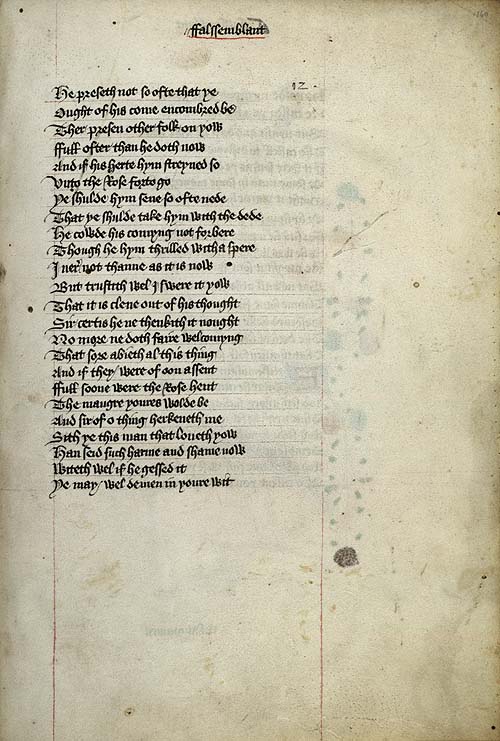 ffalssemblant
12.
He preseth not so ofte that ye
Ought of his come encombred be
Ther presen other folk on yow
fful ofter than he doth now
And if his herte hym streyned so
Unto the Rose forto go
Ye shulde hym sene so ofte nede
That ye shulde take hym with the dede
He cowde his comyng not forbere
Though he hym thrilled with a spere
I ner not thanne as it is now
But trustith wel I swere it yow
That it is clene out of his thought
Sir certis he ne thenkith it nought
No more ne doth faire welcomyng
That sore abieth al this thing
And if they were of oon assent
fful soone were the Rose hent
The maugre youres wolde be
And sir of o thing herkeneth me
Sith ye this man that loueth yow
Han seid such harme and shame now
Witeth wel if he gessed it
Ye may wel demen in youre wit